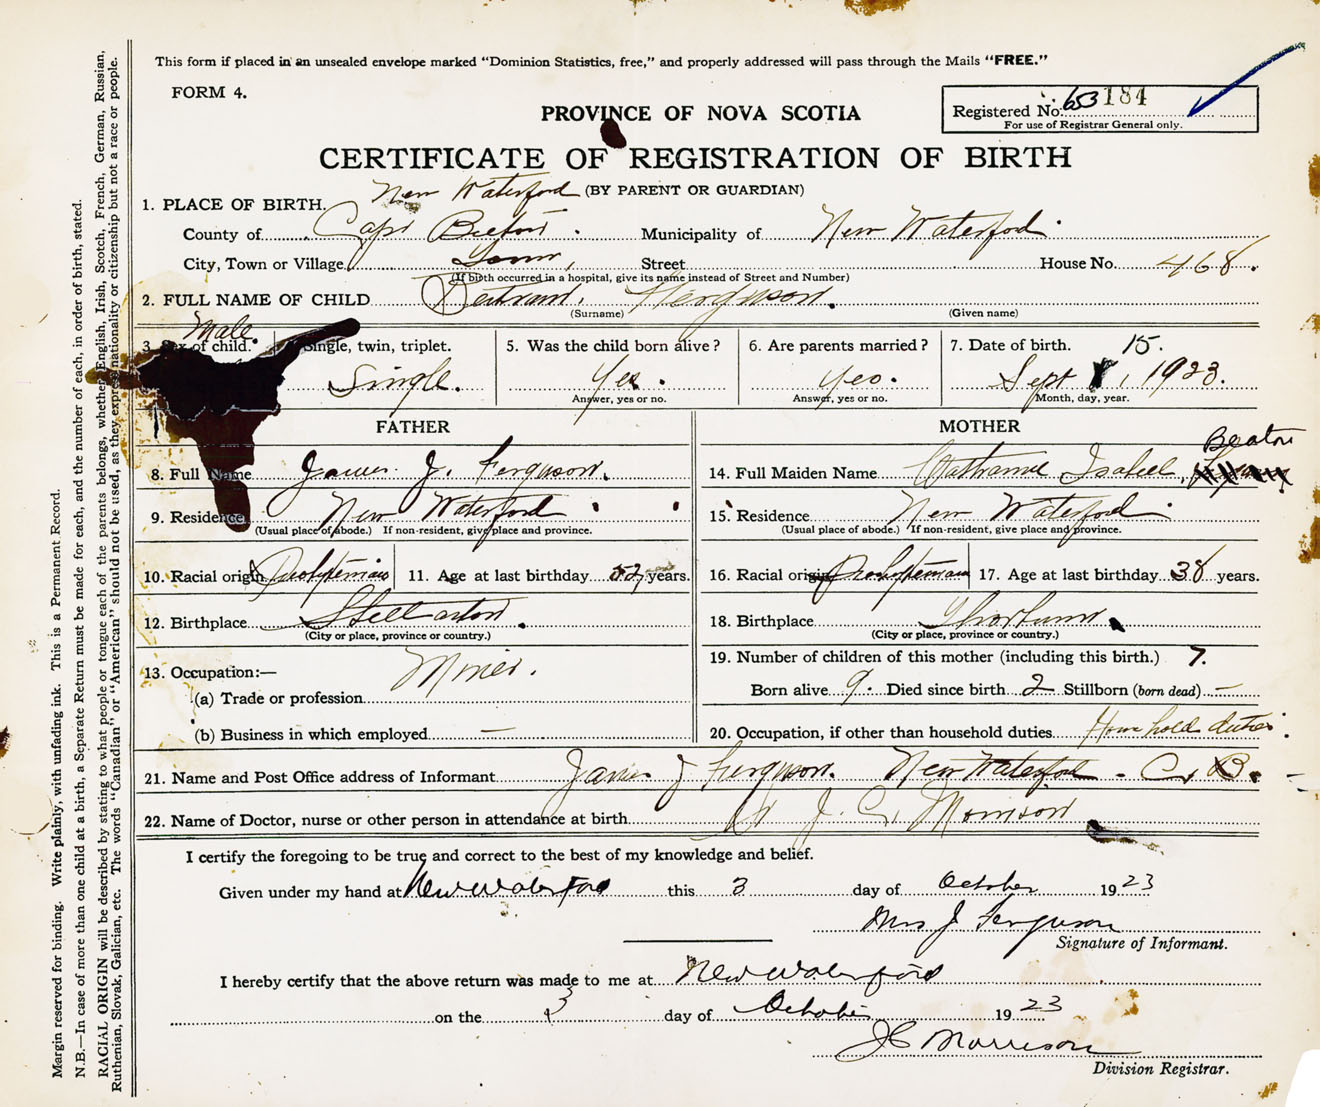 This form if placed in an unsealed envelope marked "Dominion Statistics, free," and properly addressed will pass through the Mails "FREE."
FORM 4.
Registered No. 653184
For use of Registrar General only.
PROVINCE OF NOVA SCOTIA
CERTIFICATE OF REGISTRATION OF BIRTH
(BY PARENT OR GUARDIAN)
1. PLACE OF BIRTH. New Waterford
County of Cape Breton. Municipality of New Waterford.
City, Town or Village Town, Street House No. 468.
(If birth occurred in a hospital, give its name instead of Street and Number)
2. FULL NAME OF CHILD Bertram. Ferguson.
(Surname) (Given name)
Male.
3. Sex of child. Single, twin, triplet. 5. Was the child born alive? 6. Are parents married? 7. Date of birth. 15.
Single. Yes. Yes. Sept , 1923.
Answer, yes or no. Answer, yes or no. Month, day, year.
FATHER
8. Full Name James J. Ferguson.
9. Residence New Waterford
(Usual place of abode.) If non-resident, give place and province.
10. Racial origin Presbyterian 11. Age at last birthday 52 years.
12. Birthplace Stellarton
(City or place, province or country.)
13. Occupation:— Miner.
(a) Trade or profession
(b) Business in which employed —
MOTHER
14. Full Maiden Name Isabell, Beaton
15. Residence New Waterford
(Usual place of abode.) If non-resident, give place and province.
16. Racial origin Presbyterian 17. Age at last birthday 38 years.
18. Birthplace
(City or place, province or country.)
19. Number of children of this mother (including this birth.) 7.
Born alive 9. Died since birth 2 Stillborn (born dead) —
20. Occupation, if other than household duties House hold duties
21. Name and Post Office address of Informant James J Ferguson. New Waterford - C. B.
22. Name of Doctor, nurse or other person in attendance at birth Dr J. C. Morrison
I certify the foregoing to be true and correct to the best of my knowledge and belief.
Given under my hand at New Waterford this 3 day of October 1923
Mrs J Ferguson
Signature of Informant.
I hereby certify that the above return was made to me at New Waterford
on the 3 day of October 1923
JC Morrison
Division Registrar.
Margin reserved for binding. Write plainly, with unfading ink. This is a Permanent Record.
N.B.—In case of more than one child at a birth, a Separate Return must be made for each, and the number of each, in order of birth, stated.
RACIAL ORIGIN will be described by stating to what people or tongue each of the parents belongs, whether English, Irish, Scotch, French, German, Russian,
Ruthenian, Slovak, Galician, etc. The words "Canadian" or "American" should not be used, as they express nationality or citizenship but not a race or people.